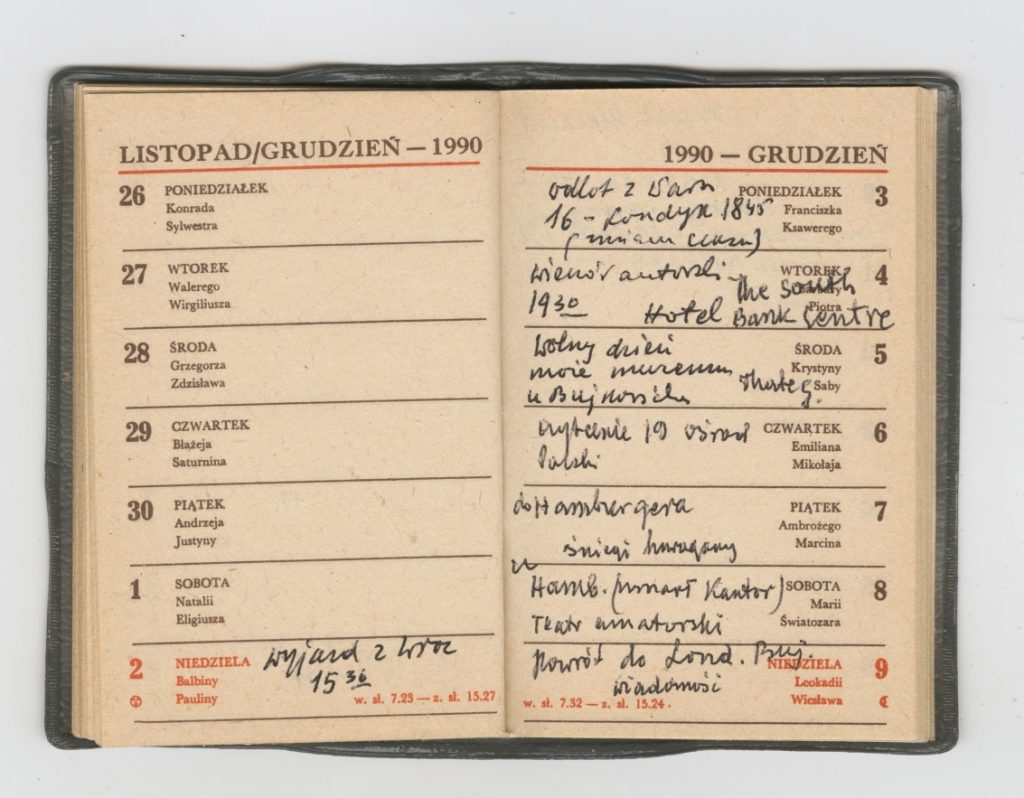 LISTOPAD/GRUDZIEŃ — 1990
26 PONIEDZIAŁEK
Konrada
Sylwestra
27 WTOREK
Walerego
Wirgiliusza
28 ŚRODA
Grzegorza
Zdzisława
29 CZWARTEK
Błażeja
Saturnina
30 PIĄTEK
Andrzeja
Justyny
1 SOBOTA
Natalii
Eligiusza
2 NIEDZIELA wyjazd z Wroc
Balbiny 15 36
Pauliny w. sł. 7.23 — z. sł. 15.27
1990 — GRUDZIEŃ
odlot z Warsz PONIEDZIAŁEK 3
16 - Londyn 1845 Franciszka
(zmiana czasu) Ksawerego
wieczór autorski WTOREK 4
The South Barbary
1930 Hotel Bank Centre Piotra
Wolny dzień ŚRODA 5
moje muzeum Krystyny
u Bujnowskich Saby
czytanie 19 ośrod CZWARTEK 6
Polski Emiliana
Mikołaja
do Hamburgera PIĄTEK 7
Ambrożego
śniegi huragany Marcina
Hamb. (umarł Kantor) SOBOTA 8
Marii
Teatr amatorski Światozara
Powrót do Lond. Buj. NIEDZIELA 9
wiadomość Leokadii
w. sł. 7.32 — z. sł. 15.24. Wiesława